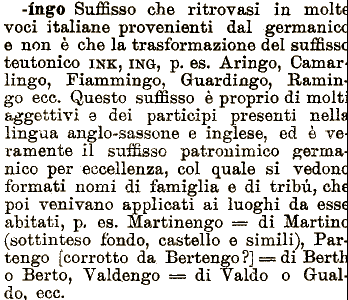 -íngo Suffisso che ritrovasi in molte
voci italiane provenienti dal germanico
e non è che la trasformazione del suffisso
teutonico INK, ING, p. es. Aringo, Camar-
lingo, Fiammingo, Guardingo, Ramin-
go ecc. Questo suffisso è proprio di molti
aggettivi e dei participi presenti nella
lingua anglo-sassone e inglese, ed è ve-
ramente il suffisso patronimico germa-
nico per eccellenza, col quale si vedono
formati nomi di famiglia e di tribú, che
poi venivano applicati ai luoghi da esse
abitati, p. es. Martinengo = di Martino
(sottinteso fondo, castello e simili), Par-
tengo [corrotto da Bertengo?] = di Berth
o Berto, Valdengo = di Valdo o Gual-
do, ecc.